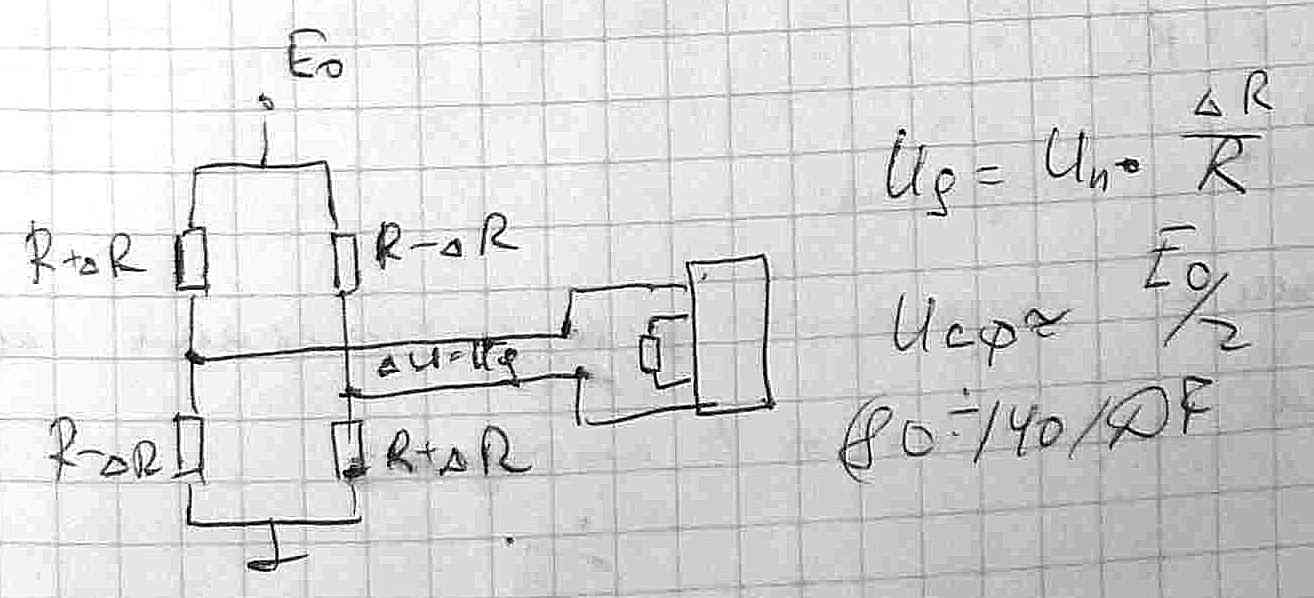 E₀
R+ΔR
R-ΔR
ΔU=Ug
R-ΔR
R+ΔR
Ug = Uп· ΔR/R
Uсф ≈ E₀/2
80÷140 дБ